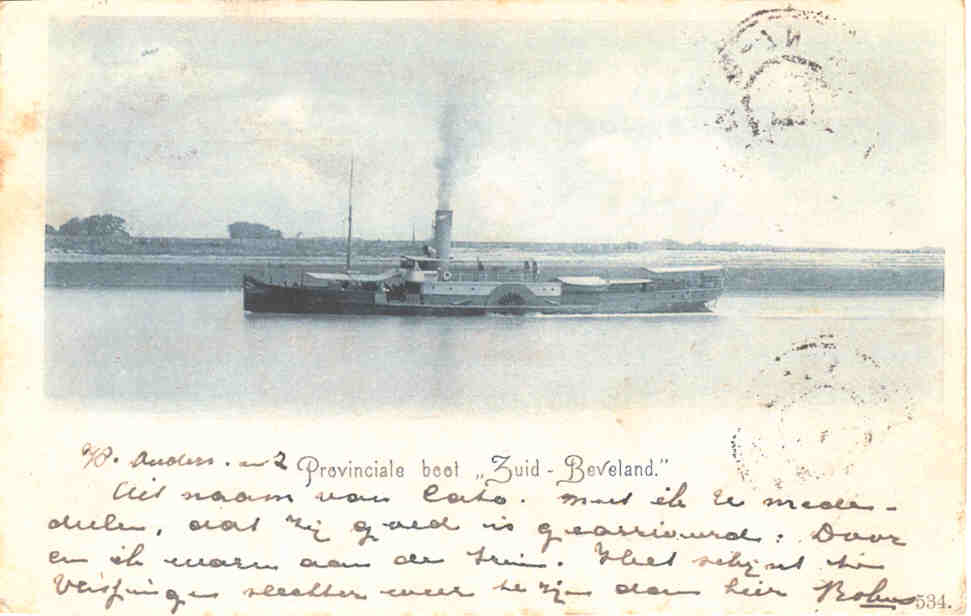 Provinciale boot „Zuid - Beveland."
Uit naam van Cato. moet ik U mede-
deelen, dat zij goed is gearriveerd: Door
en ik waren aan de trein. Het schijnt te
Vlissingen slechter weer te zijn dan hier
534.